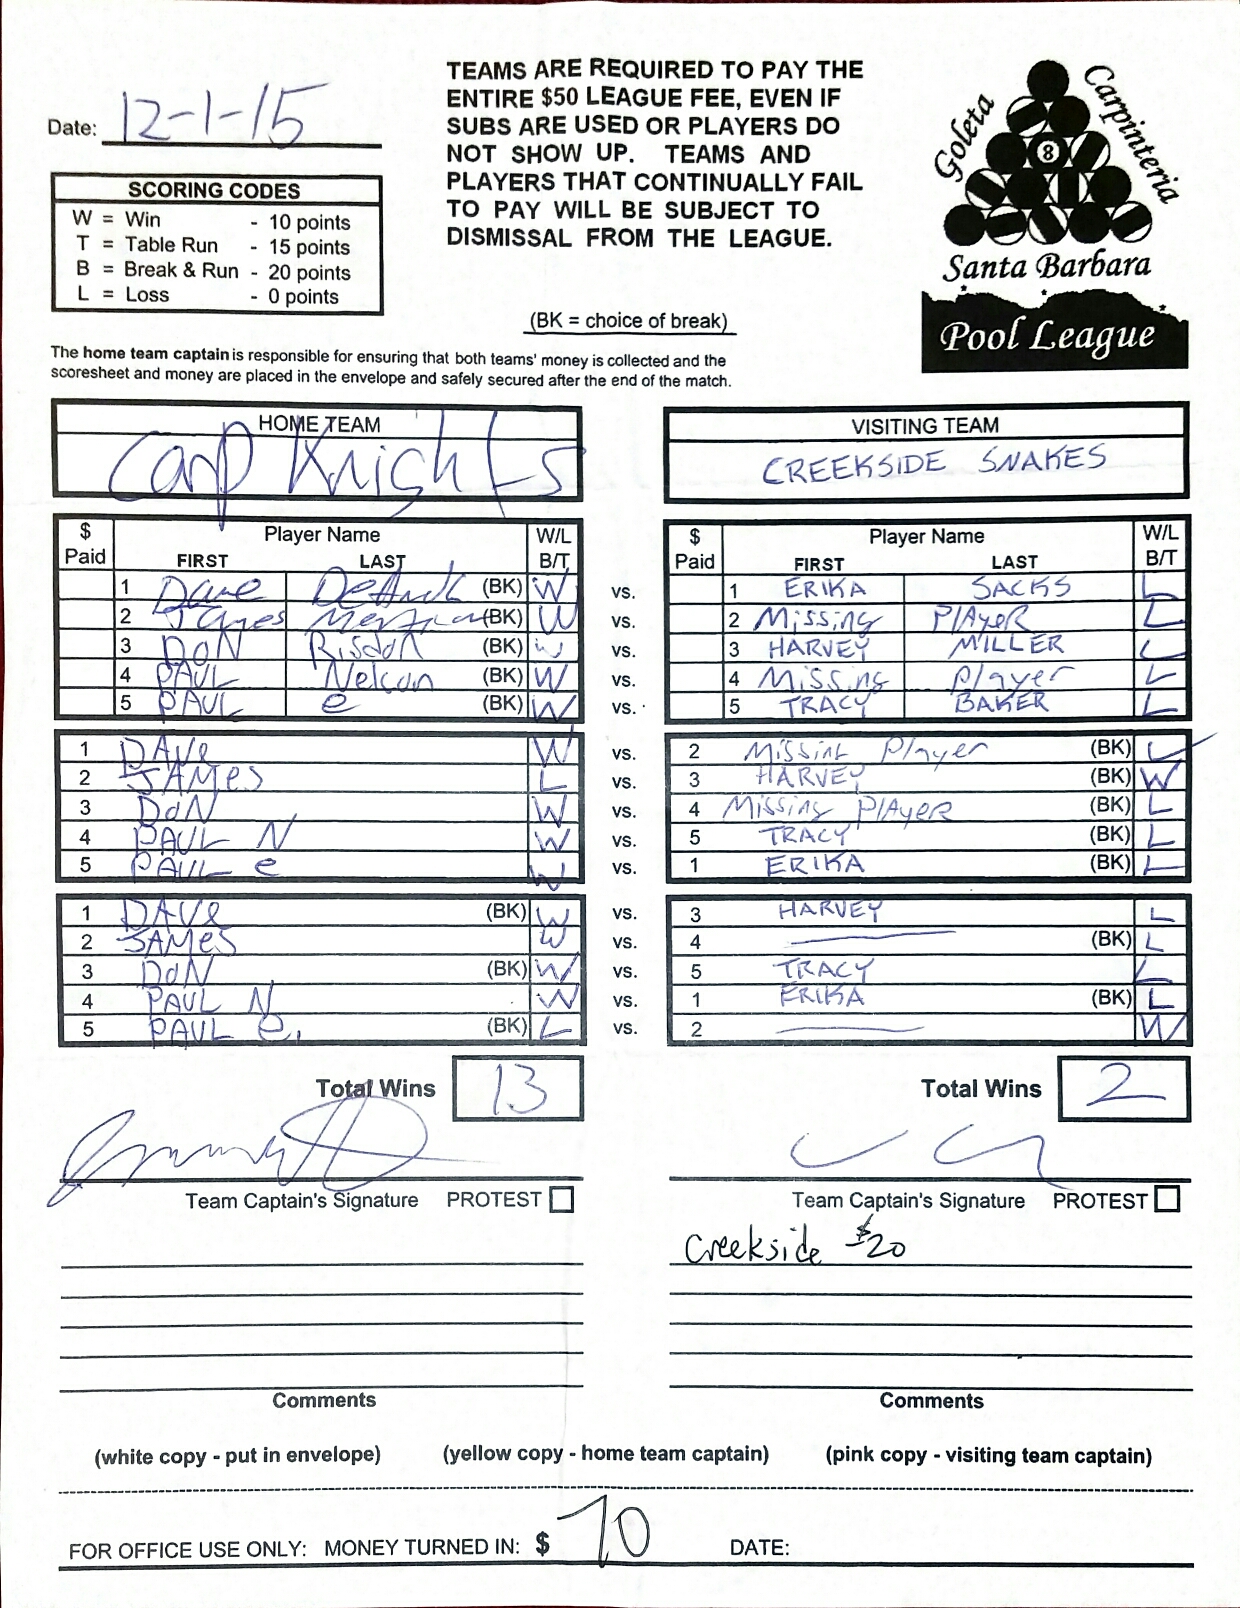 Date: 12-1-15
TEAMS ARE REQUIRED TO PAY THE
ENTIRE $50 LEAGUE FEE, EVEN IF
SUBS ARE USED OR PLAYERS DO
NOT SHOW UP. TEAMS AND
PLAYERS THAT CONTINUALLY FAIL
TO PAY WILL BE SUBJECT TO
DISMISSAL FROM THE LEAGUE.
Goleta
Carpinteria
8
Santa Barbara
Pool League
SCORING CODES
W = Win - 10 points
T = Table Run - 15 points
B = Break & Run - 20 points
L = Loss - 0 points
(BK = choice of break)
The home team captain is responsible for ensuring that both teams' money is collected and the
scoresheet and money are placed in the envelope and safely secured after the end of the match.
HOME TEAM
Carp Knights
VISITING TEAM
CREEKSIDE SNAKES
$ Paid Player Name FIRST LAST W/L B/T
$ Paid Player Name FIRST LAST W/L B/T
1 Dave (BK) W vs. 1 ERIKA SACKS L
2 James (BK) W vs. 2 Missing PlAyeR L
3 DoN Risdon (BK) W vs. 3 HARVEY MILLER L
4 PAUL Nelson (BK) W vs. 4 Missing Player L
5 PAUL e (BK) W vs. 5 TRACY BAKER L
1 DAVe W vs. 2 Missing Player (BK) L
2 JAMes L vs. 3 HARVEY (BK) W
3 DoN W vs. 4 Missing PlAyer (BK) L
4 PAUL N W vs. 5 TRACY (BK) L
5 PAUL e W vs. 1 ERIKA (BK) L
1 DAVe (BK) W vs. 3 HARVEY L
2 JAMes W vs. 4 (BK) L
3 DoN (BK) W vs. 5 TRACY L
4 PAUL N W vs. 1 ERIKA (BK) L
5 PAUL e. (BK) L vs. 2 W
Total Wins 13
Total Wins 2
Team Captain's Signature PROTEST
Team Captain's Signature PROTEST
Creekside $20
Comments
Comments
(white copy - put in envelope) (yellow copy - home team captain) (pink copy - visiting team captain)
FOR OFFICE USE ONLY: MONEY TURNED IN: $ 70 DATE: